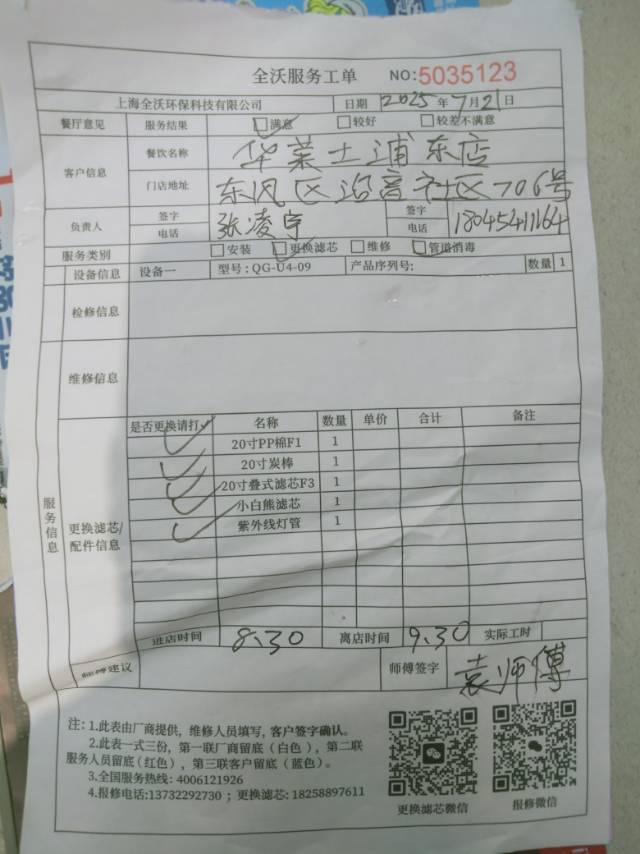 全沃服务工单 NO:5035123
上海全沃环保科技有限公司 日期 2025年7月21日
餐厅意见 服务结果 满意 较好 较差不满意
客户信息 餐饮名称 华莱士浦东店
门店地址 东风区沿富社区706号
负责人 签字 张凌宇 签字
电话 电话 18045411164
服务类别 安装 更换滤芯 维修 管道消毒
设备信息 设备一 型号: QG-U4-09 产品序列号: 数量 1
检修信息
维修信息
服务信息
更换滤芯/配件信息
是否更换请打✓ 名称 数量 单价 合计 备注
✓ 20寸PP棉F1 1
✓ 20寸炭棒 1
✓ 20寸叠式滤芯F3 1
✓ 小白熊滤芯 1
✓ 紫外线灯管 1
进店时间 8.30 离店时间 9.30 实际工时
建议 师傅签字 袁师傅
注: 1.此表由厂商提供，维修人员填写，客户签字确认。
2.此表一式三份，第一联厂商留底（白色），第二联
服务人员留底(红色)，第三联客户留底（蓝色）。
3.全国服务热线: 4006121926
4.报修电话:13732292730；更换滤芯: 18258897611
更换滤芯微信 报修微信